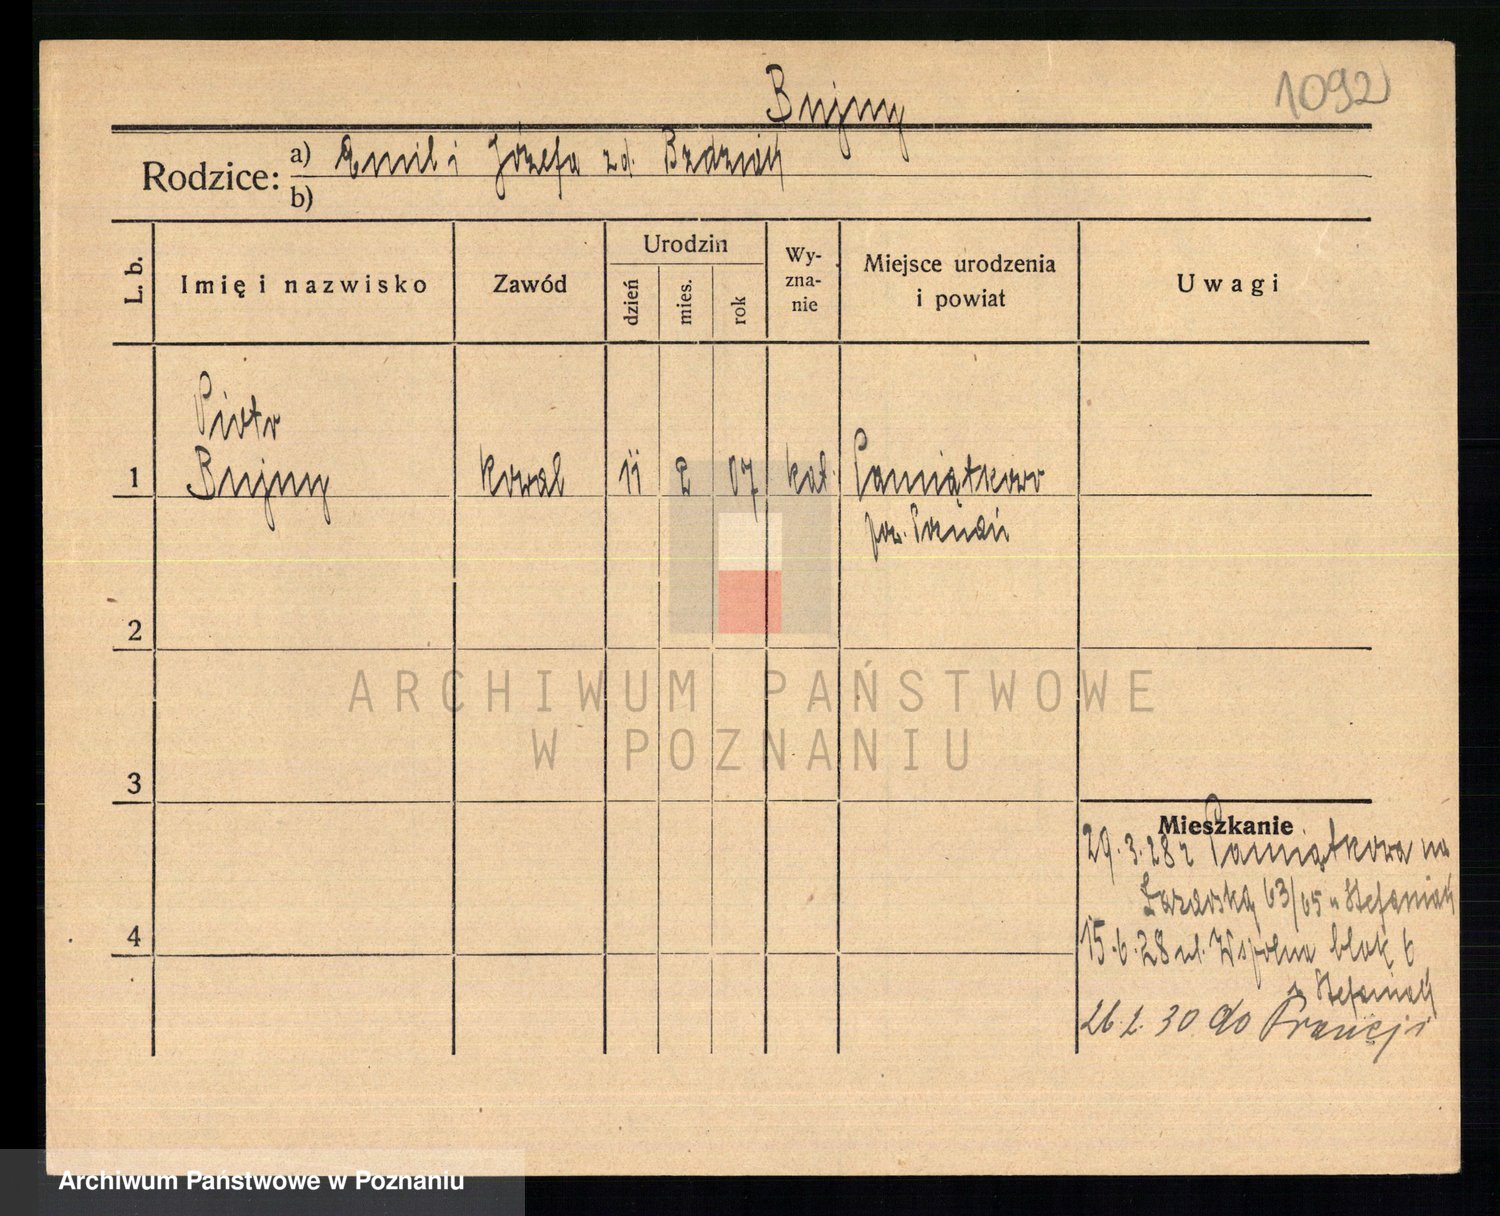 Bujny
1092
Rodzice: a) Emil i Józefa zd. Bzdziak
b)
L. b.
Imię i nazwisko
Zawód
Urodzin
dzień
mies.
rok
Wy-
zna-
nie
Miejsce urodzenia
i powiat
Uwagi
Piotr
1 Bujny kowal 11 2 07 kat. Pamiątkowo
pow. Poznań
2
3
4
ARCHIWUM PAŃSTWOWE
W POZNANIU
Mieszkanie
29.3.28 z Pamiątkowa na
63/65 u Stefaniak
15.6.28 ul. Wspólna blok 6
Stefaniak
26.2.30 do Francji
Archiwum Państwowe w Poznaniu